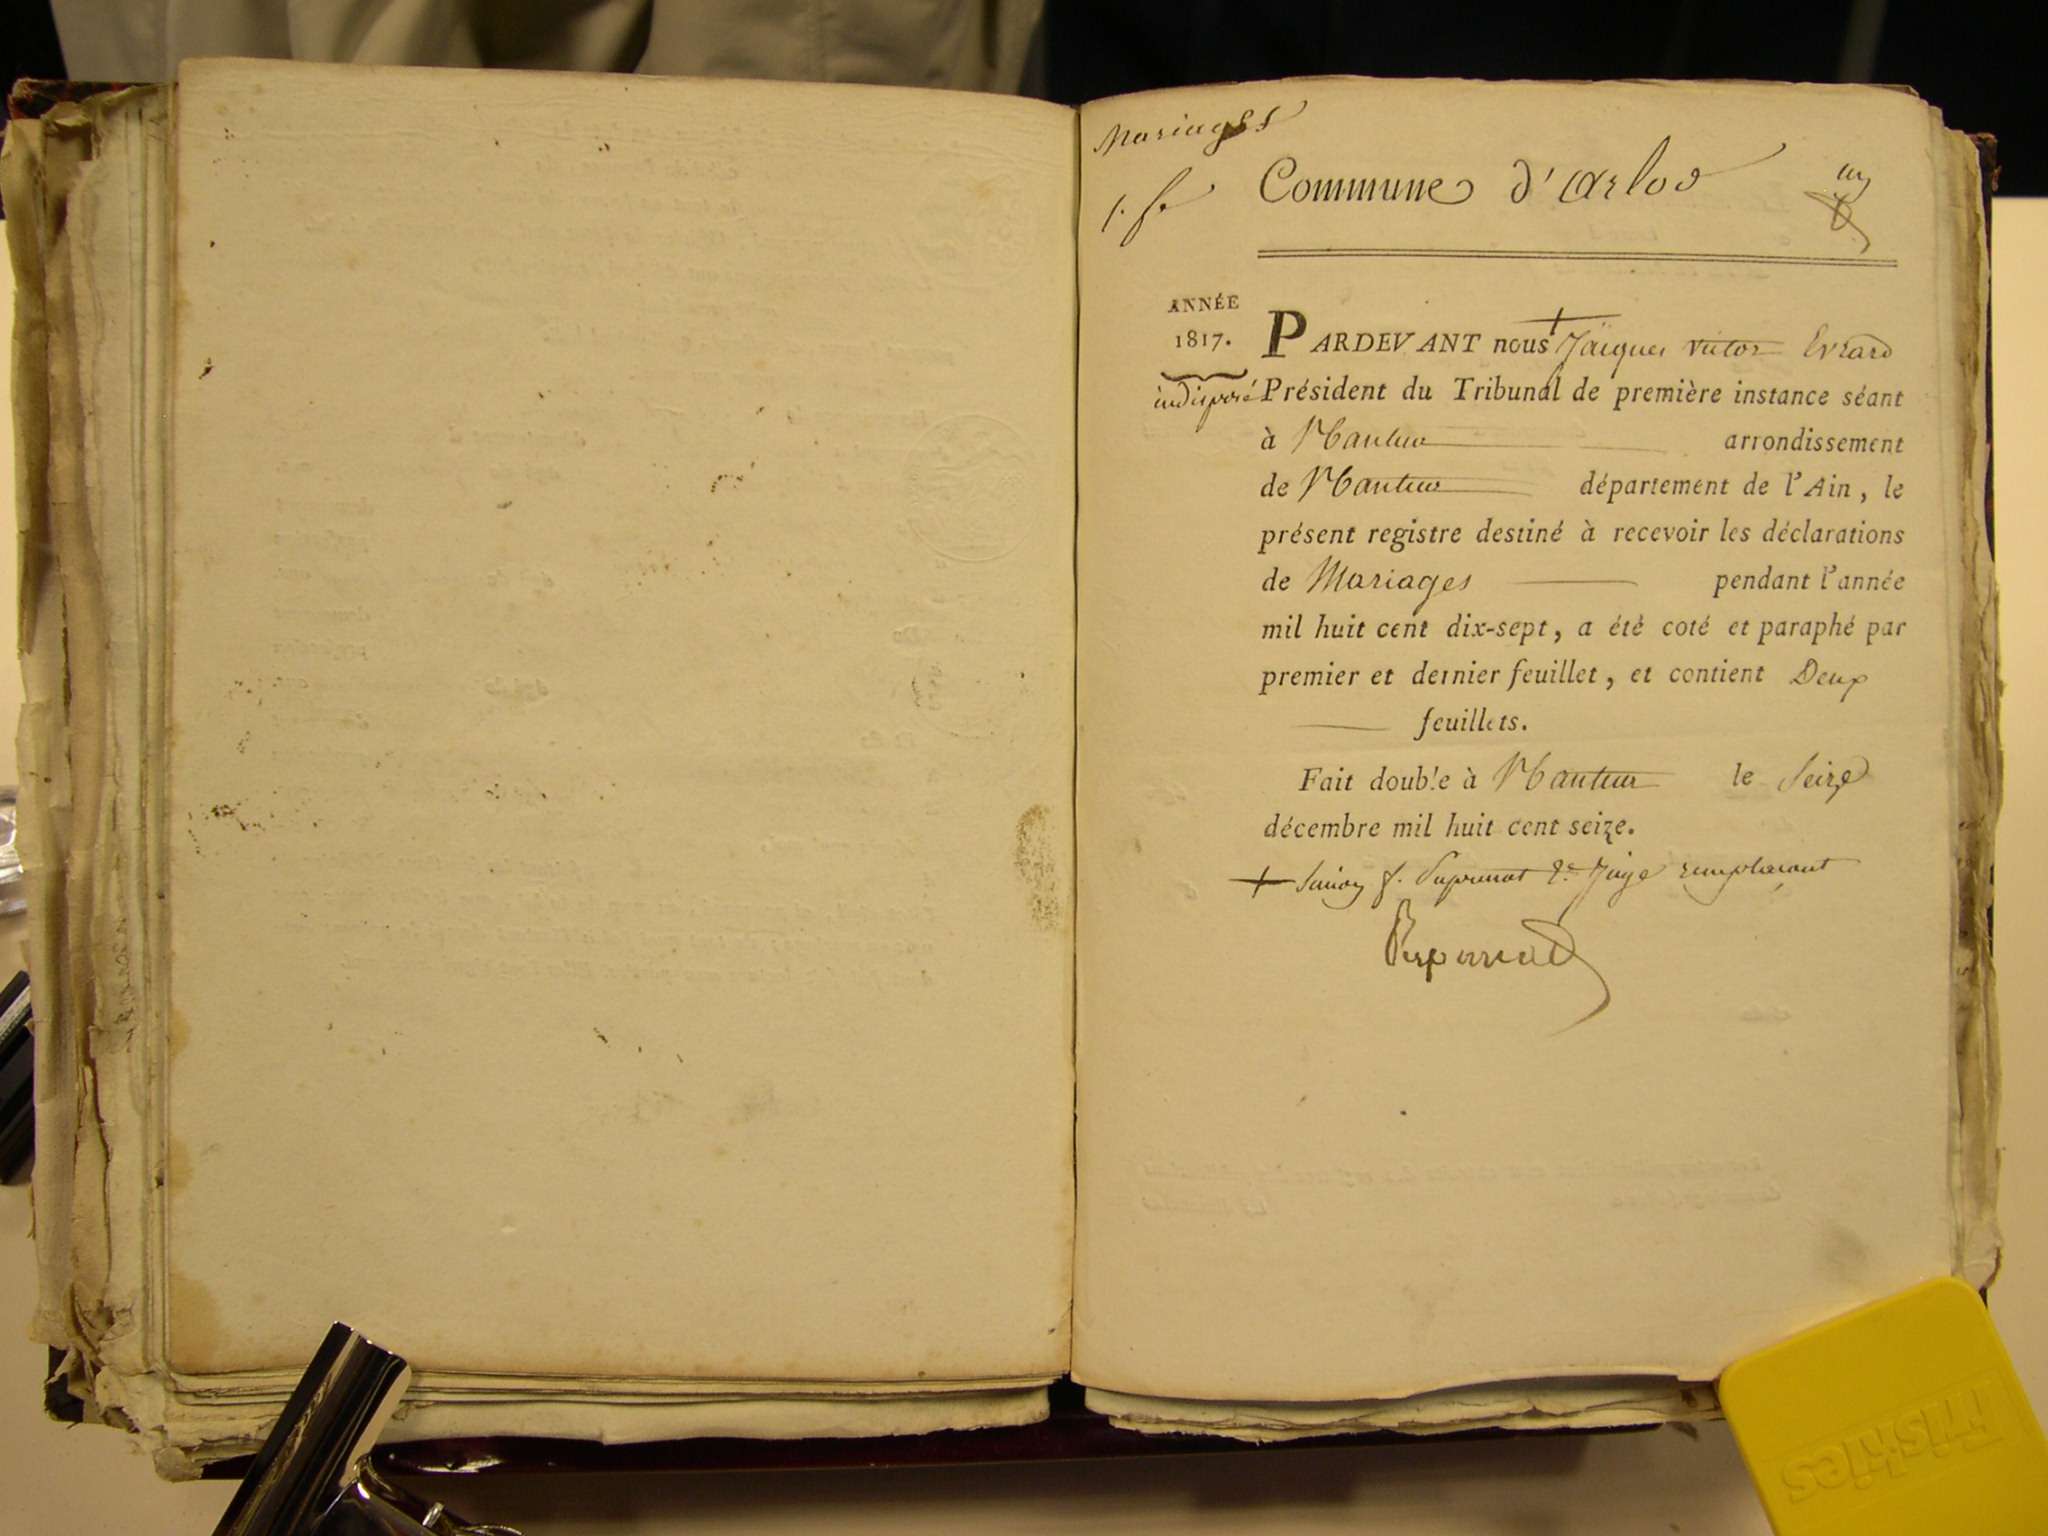 Mariages
1. f.
Commune d'Arlod
un
ANNÉE
1817.
indisposé
PARDEVANT nous + Jacques Victor Evrard
Président du Tribunal de première instance séant
à Nantua arrondissement
de Nantua département de l'Ain, le
présent registre destiné à recevoir les déclarations
de Mariages pendant l'année
mil huit cent dix-sept, a été coté et paraphé par
premier et dernier feuillet, et contient Deux
feuillets.
Fait double à Nantua le Seize
décembre mil huit cent seize.
+ f. 2e Juge remplacant
Friskies